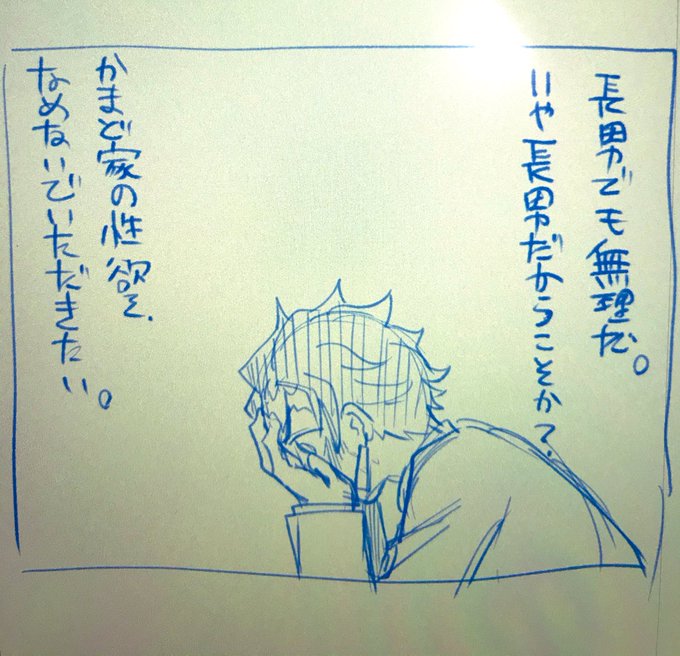 長男でも無理だ。
いや長男だからこそか?
かまど家の性欲を、
なめないでいただきたい。